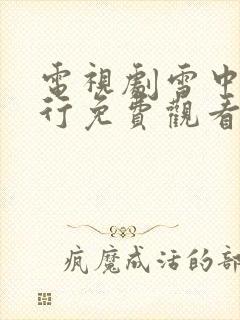 電視劇雪中
行免費觀看
疯魔成活的部